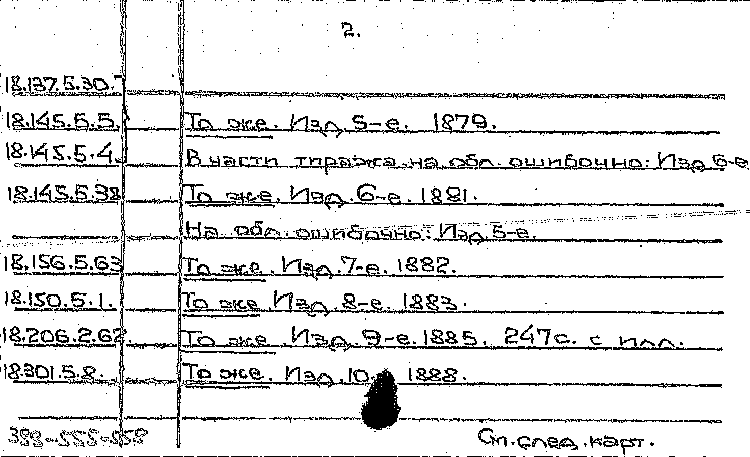 2.
18.137.5.30.
18.145.5.5. То же. Изд. 5-е. 1879.
18.145.5.4. В части тиража на обл. ошибочно: Изд 6-е
18.145.5.38 То же. Изд. 6-е. 1881.
На обл. ошибочно: Изд. 5-е.
18.156.5.63 То же. Изд. 7-е. 1882.
18.150.5.1. То же. Изд. 8-е. 1883.
18.206.2.62 То же. Изд. 9-е. 1885. 247с. с илл.
18.301.5.8. То же. Изд. 10 1888.
См. след. карт.